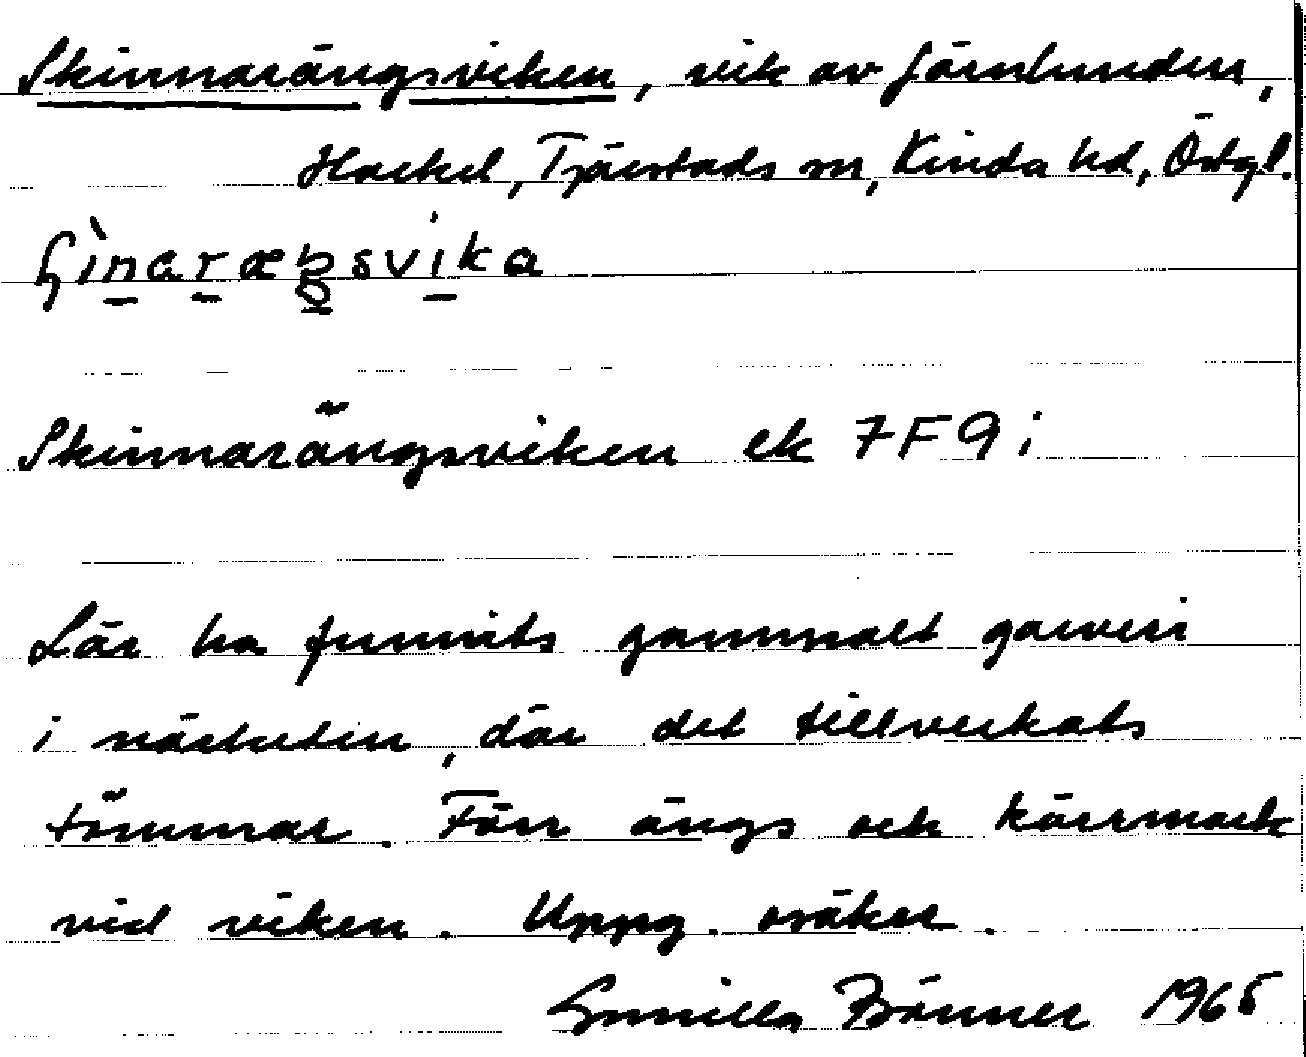 Skinnarängsviken, vik av Järnlunden,
Hackel, Tjärstads sn, Kinda hd, Östgl.
Skinnarängsviken ek 7F9i
Lär ha funnits gammalt garveri
i närheten, där det tillverkats
tömmar. Förr ängs och kärrmark
vid viken. Uppg. osäker.
Gunilla Bönner 1965